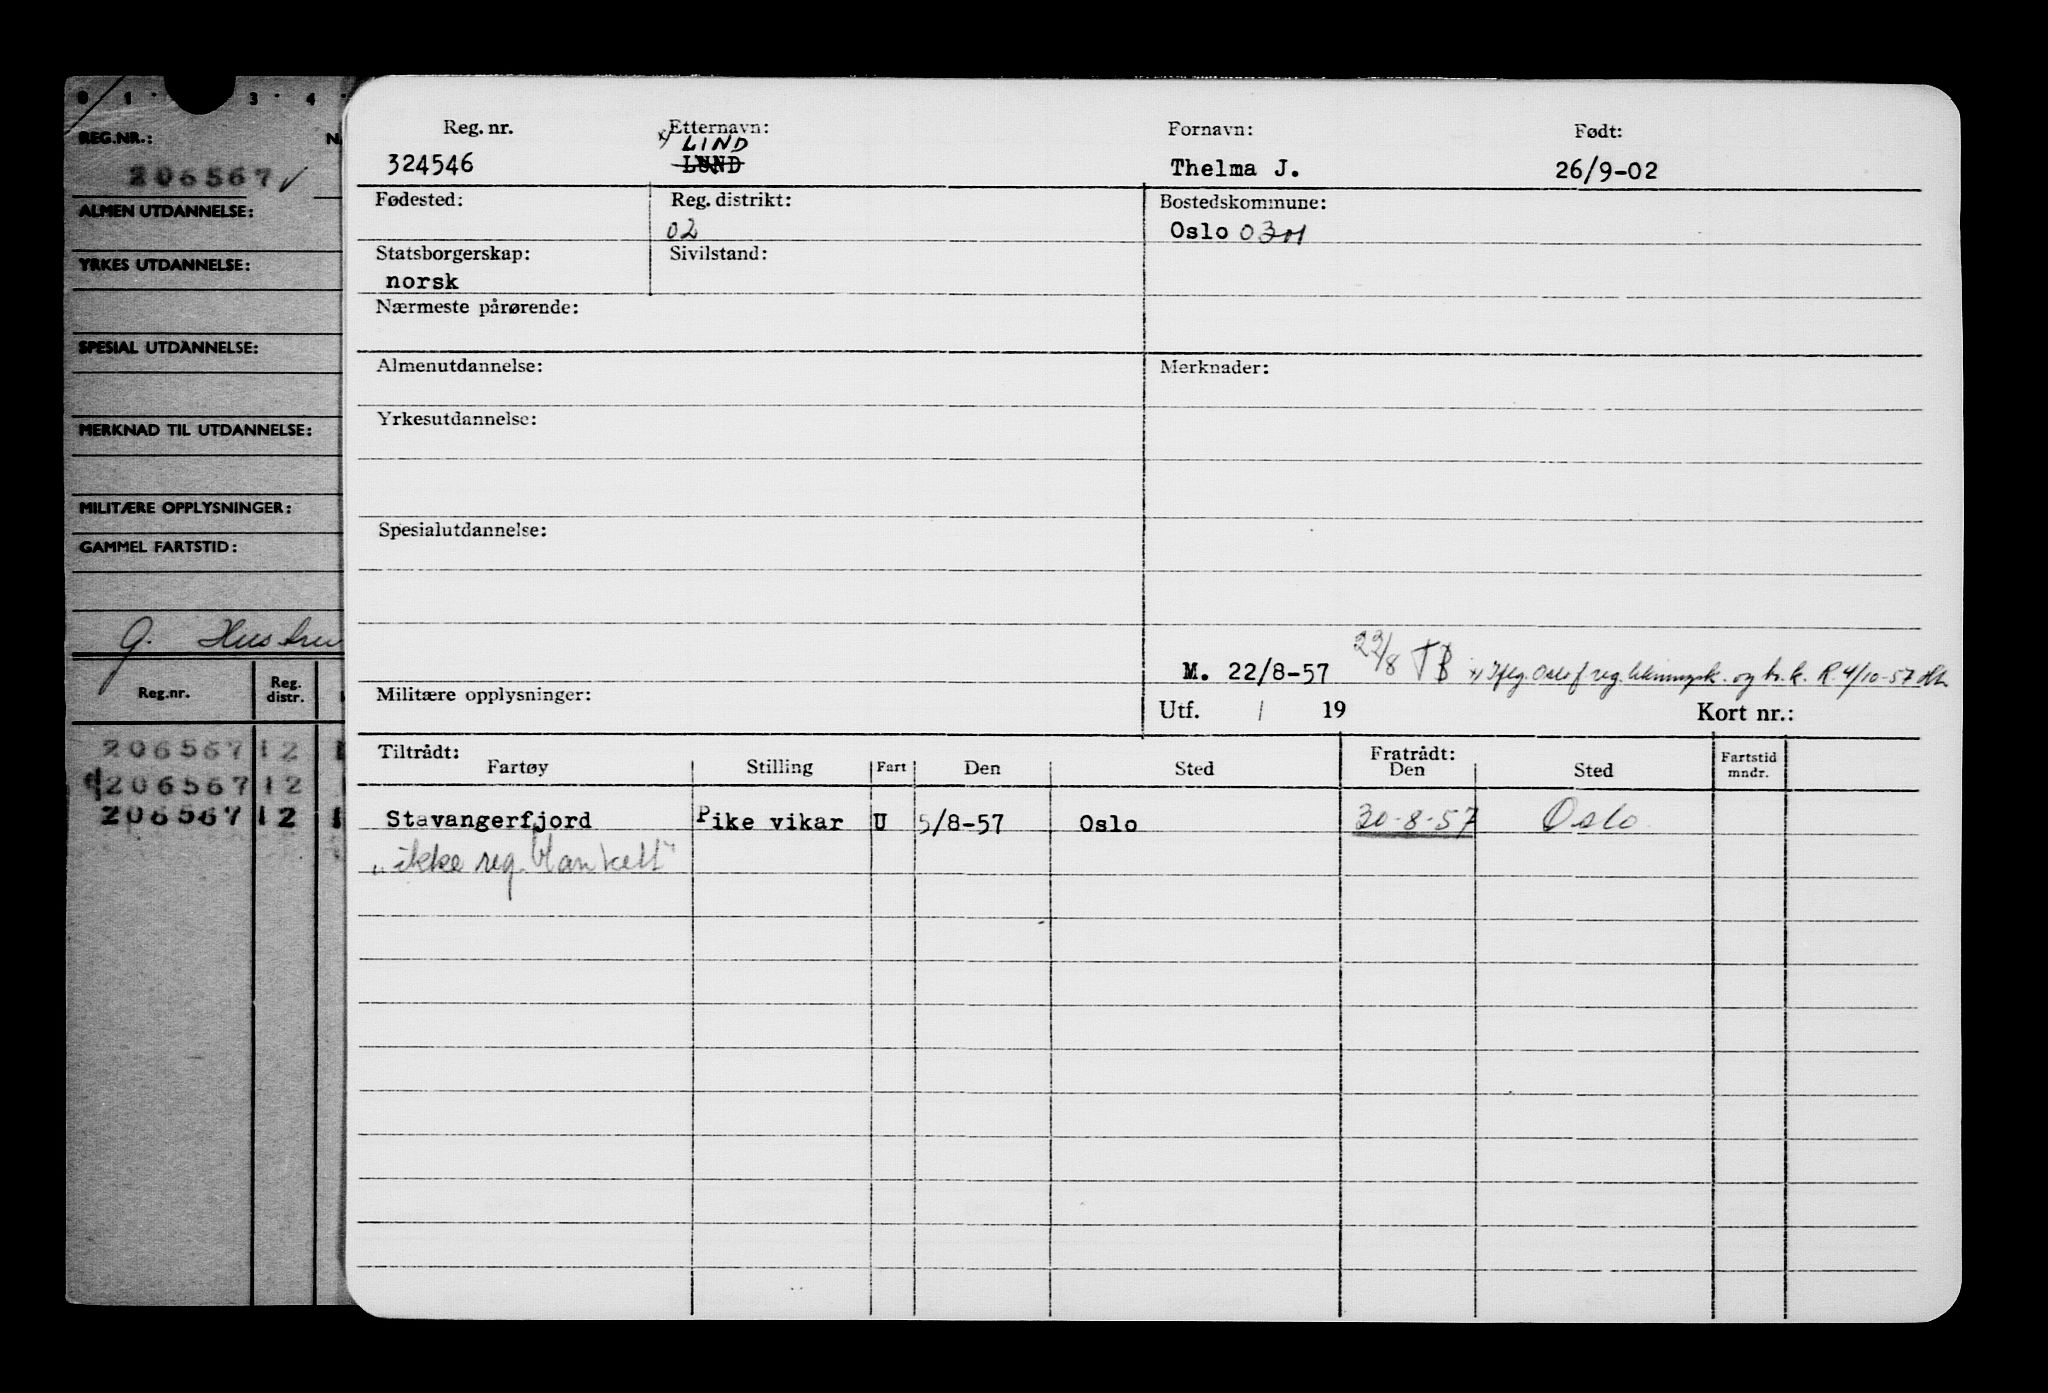 0 1 · 3 · 4 ·
REG.NR.:
206567 ✓
ALMEN UTDANNELSE:
YRKES UTDANNELSE:
SPESIAL UTDANNELSE:
MERKNAD TIL UTDANNELSE:
MILITÆRE OPPLYSNINGER:
GAMMEL FARTSTID:
G.
Reg.nr. Reg. distr.
206567 12
206567 12
206567 12
Reg. nr. Etternavn: Fornavn: Født:
x) LIND
324546 LUND Thelma J. 26/9-02
Fødested: Reg. distrikt: Bostedskommune:
02 Oslo 0301
Statsborgerskap: Sivilstand:
norsk
Nærmeste pårørende:
Almenutdannelse: Merknader:
Yrkesutdannelse:
Spesialutdannelse:
M. 22/8-57 22/8 TB x) Iflg. Oslo og R 4/10-57
Militære opplysninger:
Utf. / 19 Kort nr.:
Tiltrådt: Fratrådt:
Fartøy Stilling Fart Den Sted Den Sted Fartstid mndr.
Stavangerfjord Pike vikar U 5/8-57 Oslo 30-8-57 Oslo
"ikke reg. blankett"